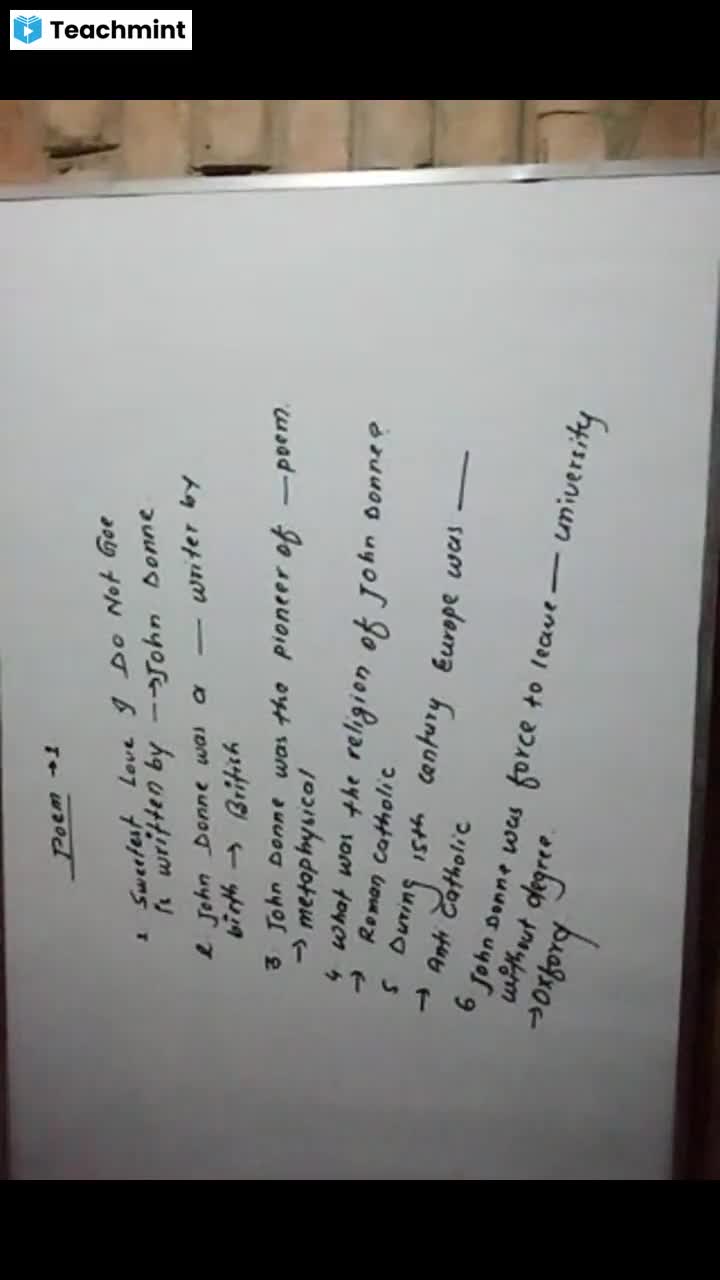 Teachmint
Poem → 1
1 Sweetest Love I Do Not Goe
is written by → John Donne
2 John Donne was a — writer by
birth → British
3 John Donne was the pioneer of — poem.
→ metaphysical
4 What was the religion of John Donne?
→ Roman catholic
5 During 15th century Europe was —
→ Anti catholic
6 John Donne was force to leave — university
without degree.
→ Oxford